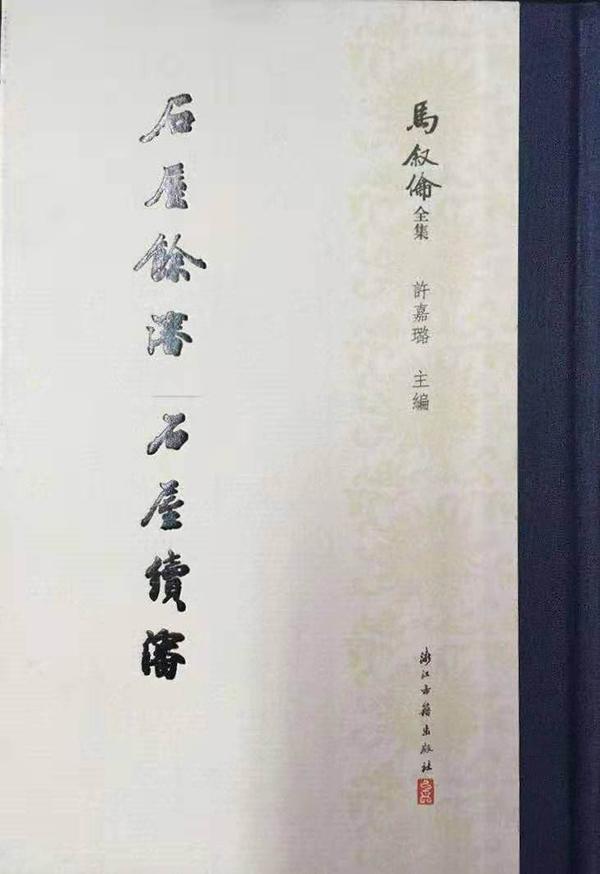 馬叙倫全集
許嘉璐 主編
石屋餘瀋
石屋續瀋
浙江古籍出版社